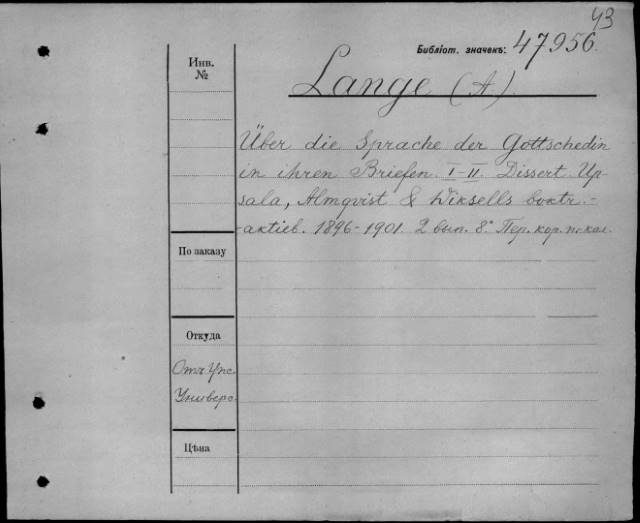 43
Библіот. значекъ: 47956.
Инв. №
Lange (A).
Über die Sprache der Gottschedin
in ihren Briefen. I-II. Dissert. Up-
sala, Almqvist & Wiksells boktr.-
-aktieb. 1896-1901. 2 вып. 8° Пер. кор. по кал.
По заказу
Откуда
Отъ Упс.
Универс.
Цѣна